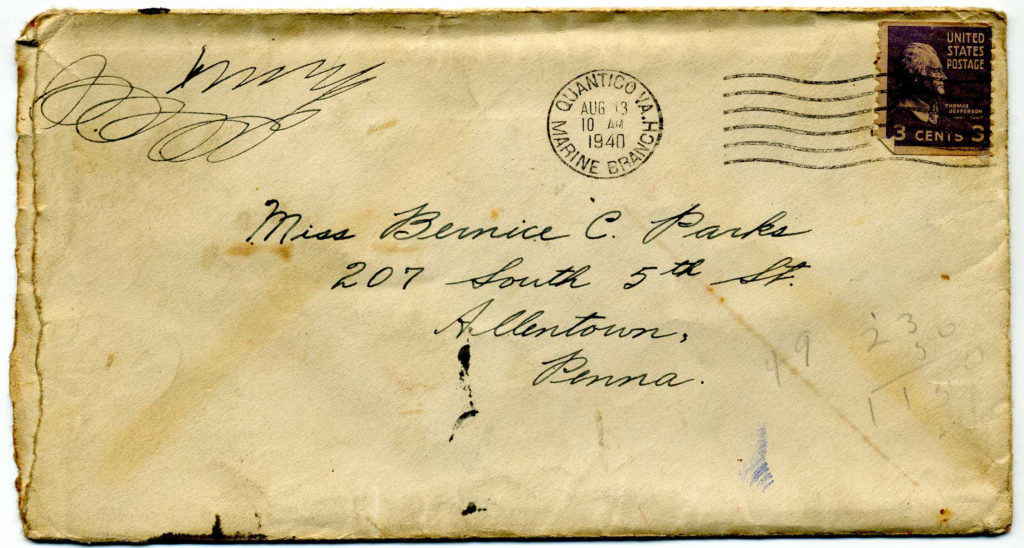 QUANTICO VA.
AUG 13
10 AM
1940
MARINE BRANCH
UNITED
STATES
POSTAGE
THOMAS
JEFFERSON
3 CENTS 3
Miss Bernice C. Parks
207 South 5th St.
Allentown,
Penna.
49